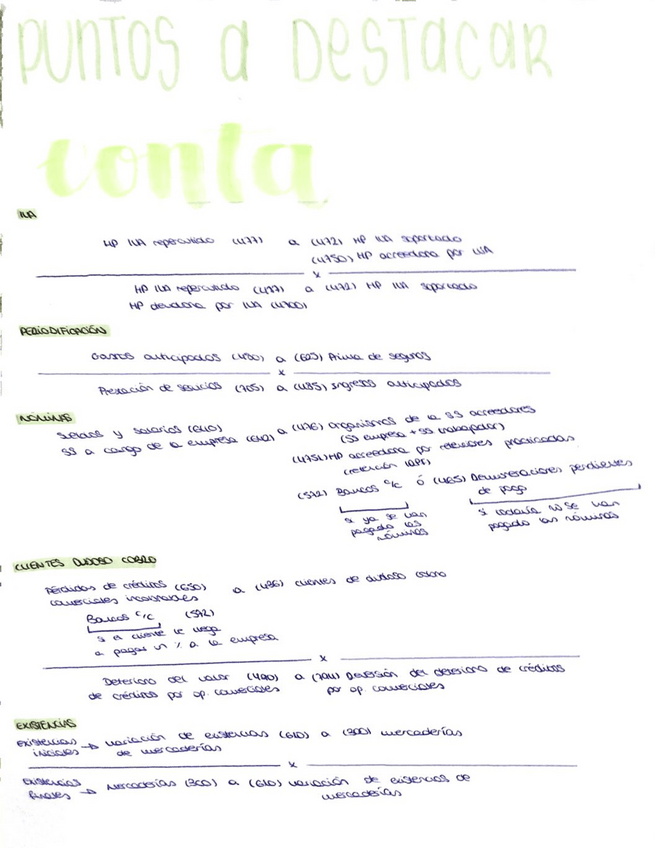 PUNTOS A DESTACAR
conta
IVA
HP IVA repercutido (477) a (472) HP IVA soportado
(4750) HP acreedora por IVA
x
HP IVA repercutido (477) a (472) HP IVA soportado
HP deudora por IVA (4700)
PERIODIFICACIÓN
Gastos anticipados (480) a (625) Prima de seguros
x
Prestación de servicios (705) a (485) Ingresos anticipados
NÓMINAS
Sueldos y salarios (640) a (476) organismos de la SS acreedores
SS a cargo de la empresa (642) (SS empresa + SS trabajador)
(4751) HP acreedora por retenciones practicadas
(retención IRPF)
(572) Bancos c/c ó (465) Remuneraciones pendientes
de pago
si ya se han
pagado las
nóminas
si todavía no se han
pagado las nóminas
CLIENTES DUDOSO COBRO
Pérdidas de créditos (650) a (436) clientes de dudoso cobro
comerciales incobrables
Bancos c/c (572)
si el cliente le llega
a pagar un % a la empresa
x
Deterioro del valor (490) a (794) Reversión del deterioro de créditos
de créditos por op. comerciales por op. comerciales
EXISTENCIAS
existencias iniciales → variación de existencias (610) a (300) mercaderías
de mercaderías
x
existencias finales → Mercaderías (300) a (610) variación de existencias de
mercaderías